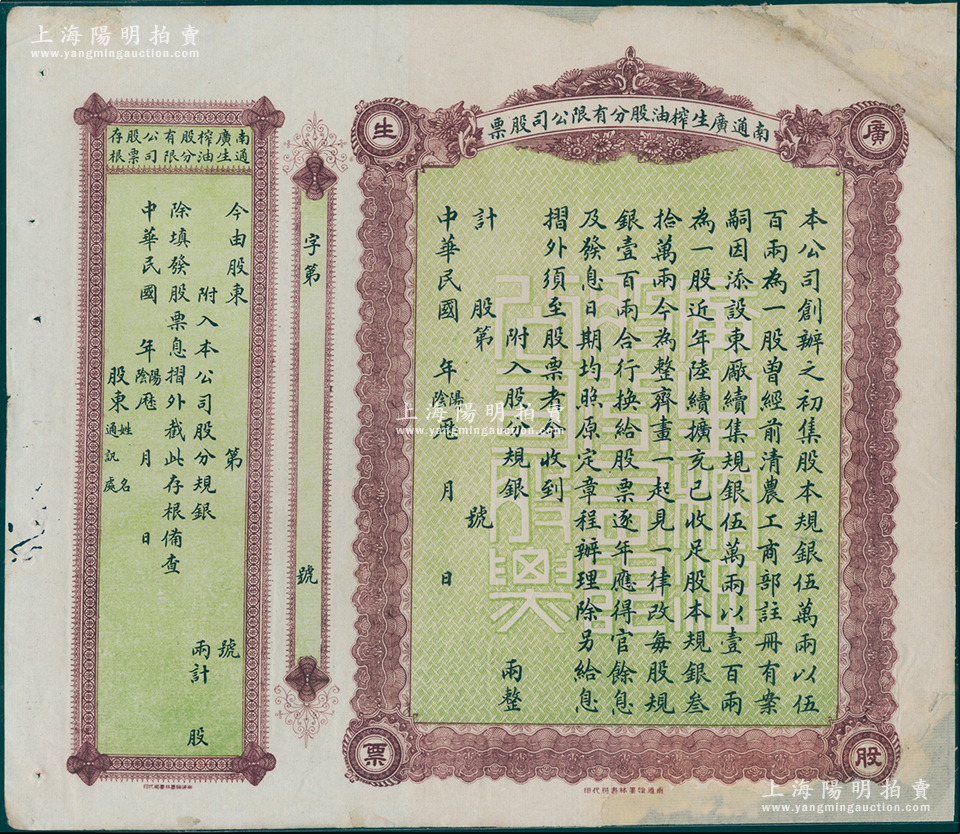 上海陽明拍賣
www.yangmingauction.com
上海陽明拍賣
www.yangmingauction.com
廣
生
股
票
南通廣生榨油股分有限公司股票
本公司創辦之初集股本規銀伍萬兩以伍
百兩為一股曾經前清農工商部註冊有案
嗣因添設東厰續集規銀伍萬兩以壹百兩
為一股近年陸續擴充已收足股本規銀叁
拾萬兩今為整齊畫一起見一律改每股規
銀壹百兩合行換給股票逐年應得官餘息
及發息日期均照原定章程辦理除另給息
摺外須至股票者今收到
附入股分規銀 兩整
計 股第 號
中華民國 年 陽陰 月 日
字第 號
南通廣生榨油股分有限公司股票存根
今由股東 第 號
附入本公司股分規銀 兩計 股
除填發股票息摺外截此存根備查
中華民國 年 陽陰歷 月 日
股東 姓名 通訊處
南通翰墨林書局代印
南通翰墨林書局代印
上海陽明拍賣
www.yangmingauction.com
上海陽明拍賣
www.yangmingauction.com